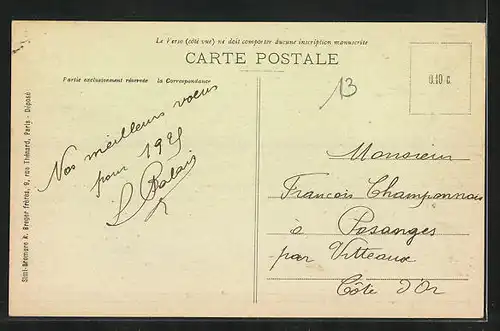 Le Verso (côté vue) ne doit comporter aucune inscription manuscrite
CARTE POSTALE
Partie exclusivement réservée à la Correspondance
13
0.10 c.
Nos meilleurs voeux
pour 1925
Simi-Bromure A. Breger Frères, 9, rue Thénard, Paris - Déposé
Monsieur
François Champonnois
à Posanges
par Vitteaux
Côte d'Or